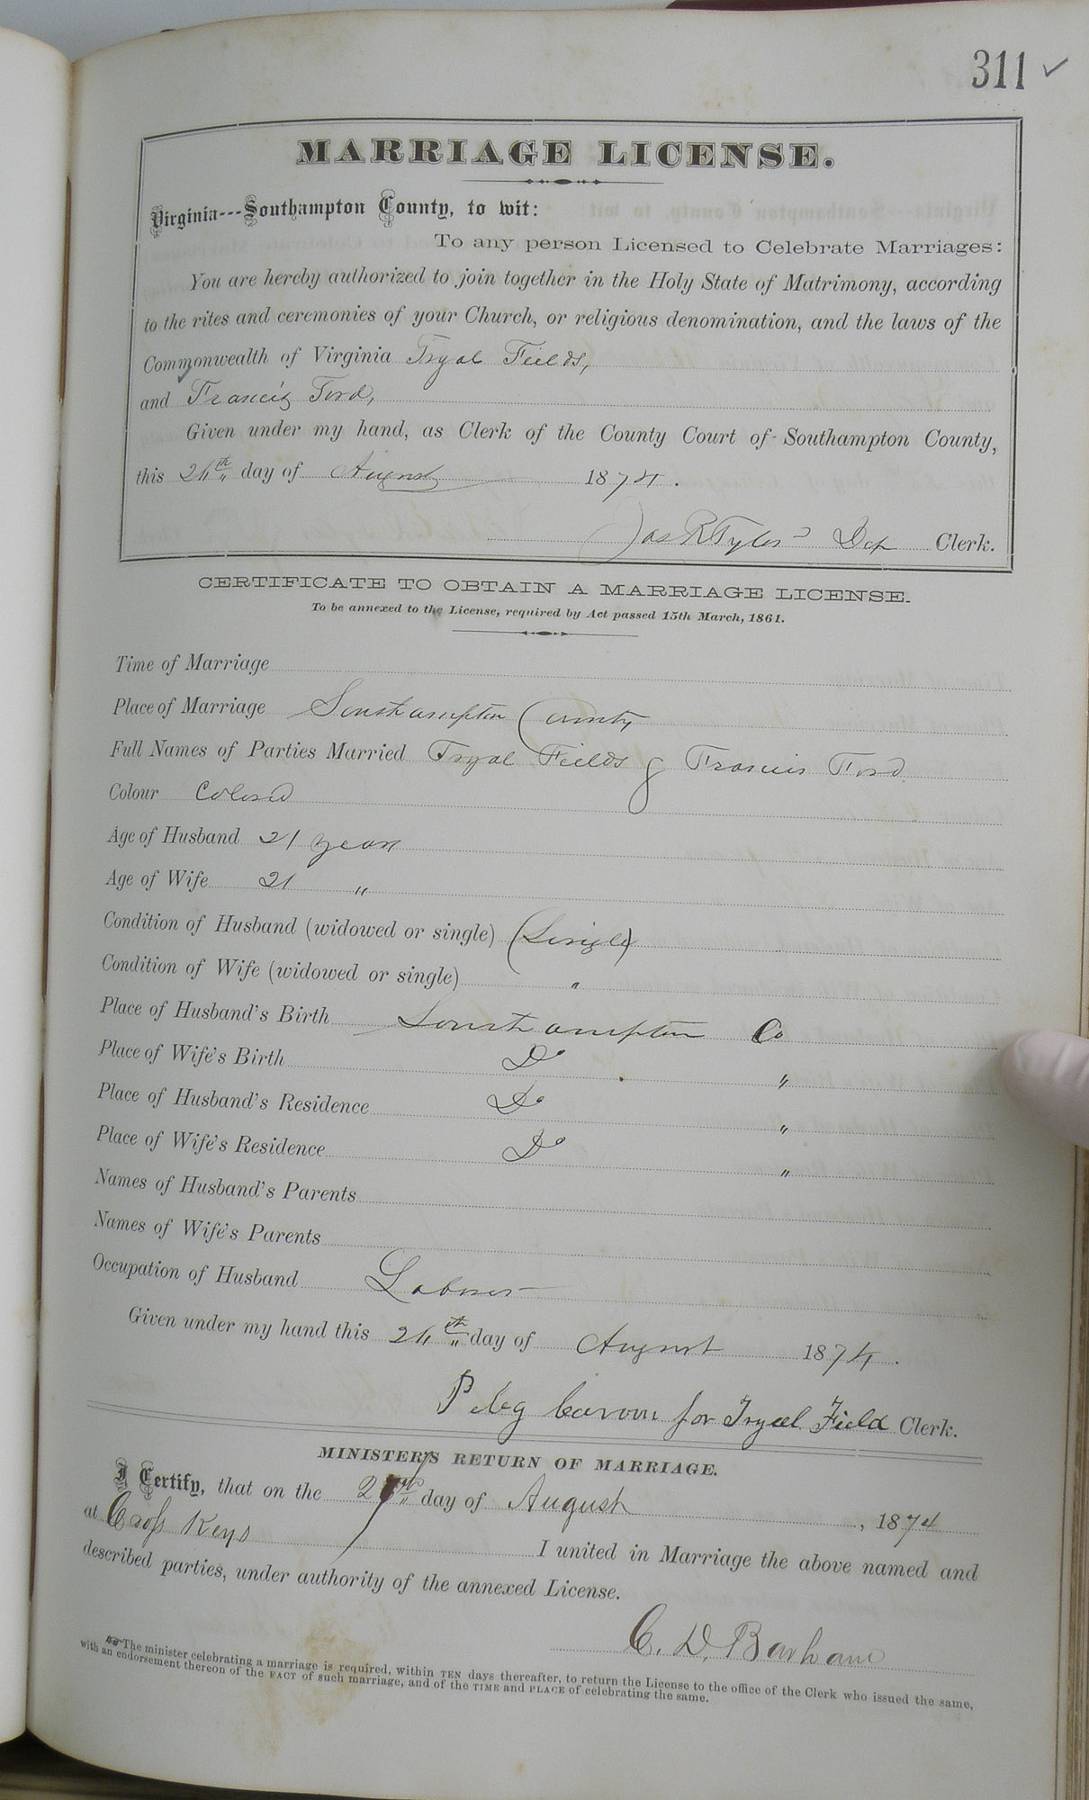 311 ✓
MARRIAGE LICENSE.
Virginia---Southampton County, to wit:
To any person Licensed to Celebrate Marriages:
You are hereby authorized to join together in the Holy State of Matrimony, according
to the rites and ceremonies of your Church, or religious denomination, and the laws of the
Commonwealth of Virginia Tryal Fields,
and Francis Ford,
Given under my hand, as Clerk of the County Court of Southampton County,
this 24th day of August 1874.
Jas R Tyler Dep Clerk.
CERTIFICATE TO OBTAIN A MARRIAGE LICENSE.
To be annexed to the License, required by Act passed 15th March, 1861.
Time of Marriage
Place of Marriage Southampton County
Full Names of Parties Married Tryal Fields & Francis Ford
Colour Colored
Age of Husband 21 years
Age of Wife 21 "
Condition of Husband (widowed or single) (Single)
Condition of Wife (widowed or single) "
Place of Husband's Birth Southampton Co
Place of Wife's Birth Do "
Place of Husband's Residence Do "
Place of Wife's Residence Do "
Names of Husband's Parents
Names of Wife's Parents
Occupation of Husband Laborer
Given under my hand this 24th day of August 1874.
Peleg for Tryal Field Clerk.
MINISTER'S RETURN OF MARRIAGE.
I Certify, that on the 27th day of August, 1874
at Cross Keys I united in Marriage the above named and
described parties, under authority of the annexed License.
C. D. Barham
The minister celebrating a marriage is required, within TEN days thereafter, to return the License to the office of the Clerk who issued the same,
with an endorsement thereon of the FACT of such marriage, and of the TIME and PLACE of celebrating the same.